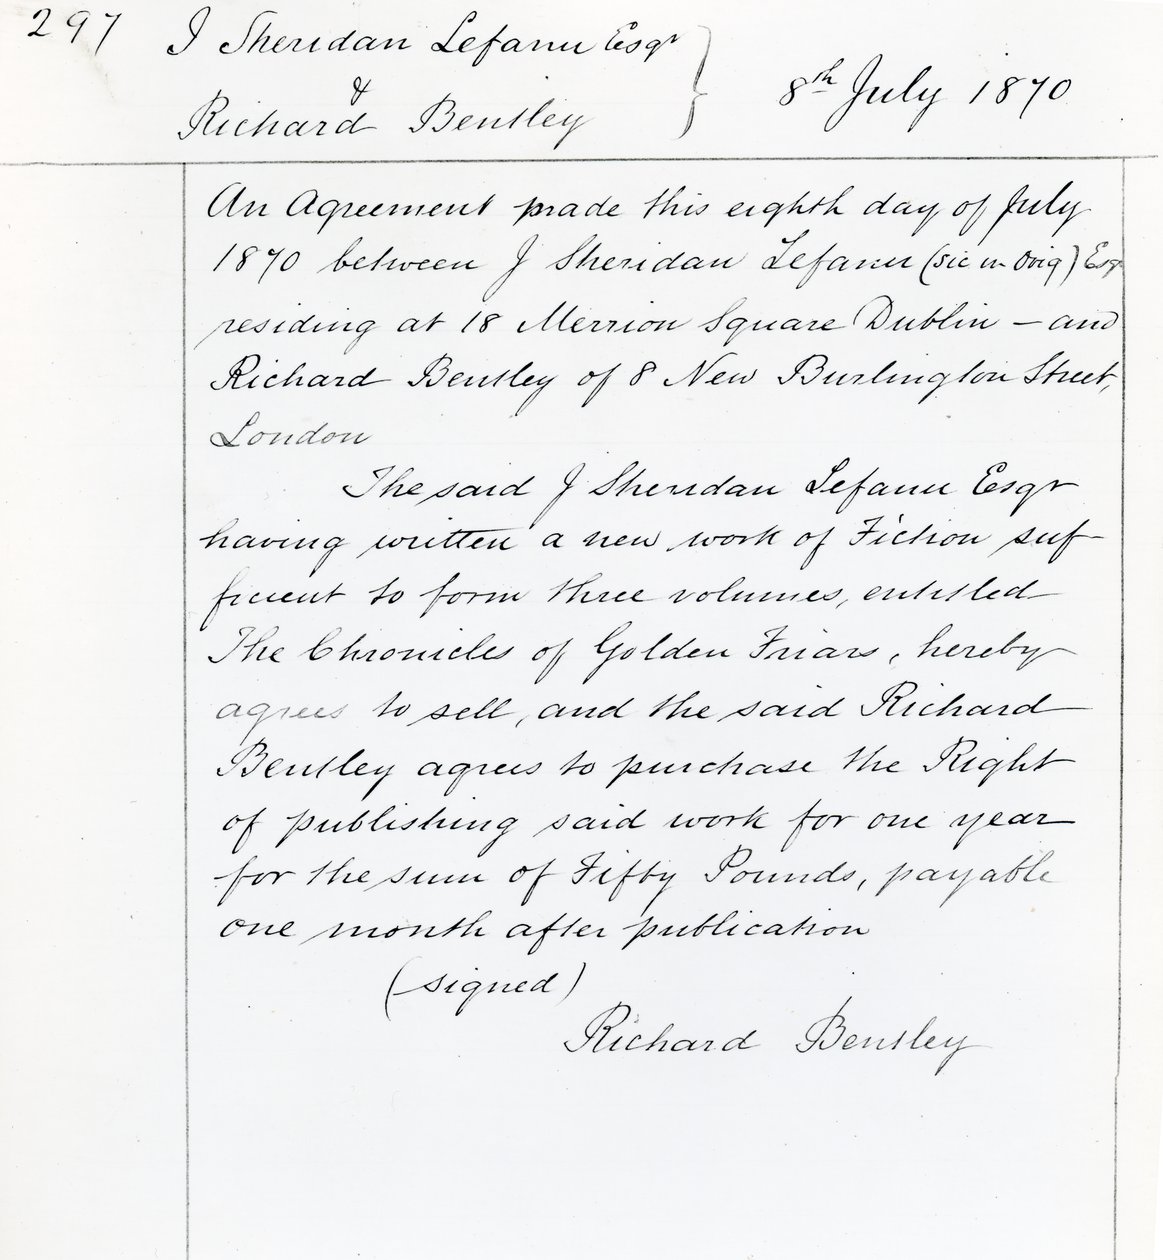 297
J Sheridan Lefanu Esqr
&
Richard Bentley
8th July 1870
An Agreement made this eighth day of July
1870 between J Sheridan Lefanu (sic in Orig) Esqr
residing at 18 Merrion Square Dublin – and
Richard Bentley of 8 New Burlington Street,
London
The said J Sheridan Lefanu Esqr
having written a new work of Fiction suf-
ficient to form three volumes, entitled
The Chronicles of Golden Friars, hereby
agrees to sell, and the said Richard
Bentley agrees to purchase the Right
of publishing said work for one year
for the sum of Fifty Pounds, payable
one month after publication
(signed)
Richard Bentley